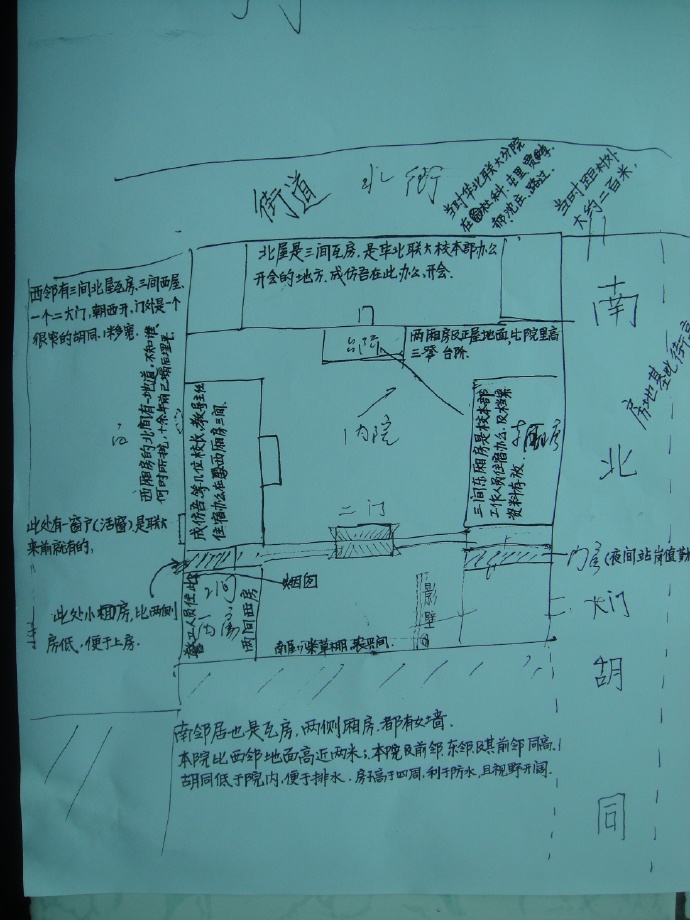 街道 北街
当时华北联大分院
当时距村外
大约二百米,
北屋是三间瓦房,是华北联大校本部办公
开会的地方,成仿吾在此办公、开会.
西邻有三间北屋瓦房,三间西屋,
一个二大门,朝西开,门外是一个
很窄的胡同,1米多宽.
西厢房的北间有一地道,不知谁,
何时所挖,十余年前已塌后埋平.
台阶
两厢房及正屋地面,比院里高
三率台阶.
内院
成仿吾等几位校长、教导主任
住宿办公在西厢房三间.
三间东厢房是校本部
工作人员住宿办公,及档案
资料存放.
二门
此处有一窗户(活窗)是联大
来前就有的,
此处小棚房,比两侧
房低,便于上房.
烟囱
两间西房
影壁
门房(夜间站岗值勤
大门
南邻居也是瓦房,两侧厢房.都有女墙.
本院比西邻地面高近两米;本院及前邻、东邻及其前邻同高.
胡同低于院内,便于排水.房子高于四周,利于防水,且视野开阔.
南北胡同
房地基比街高